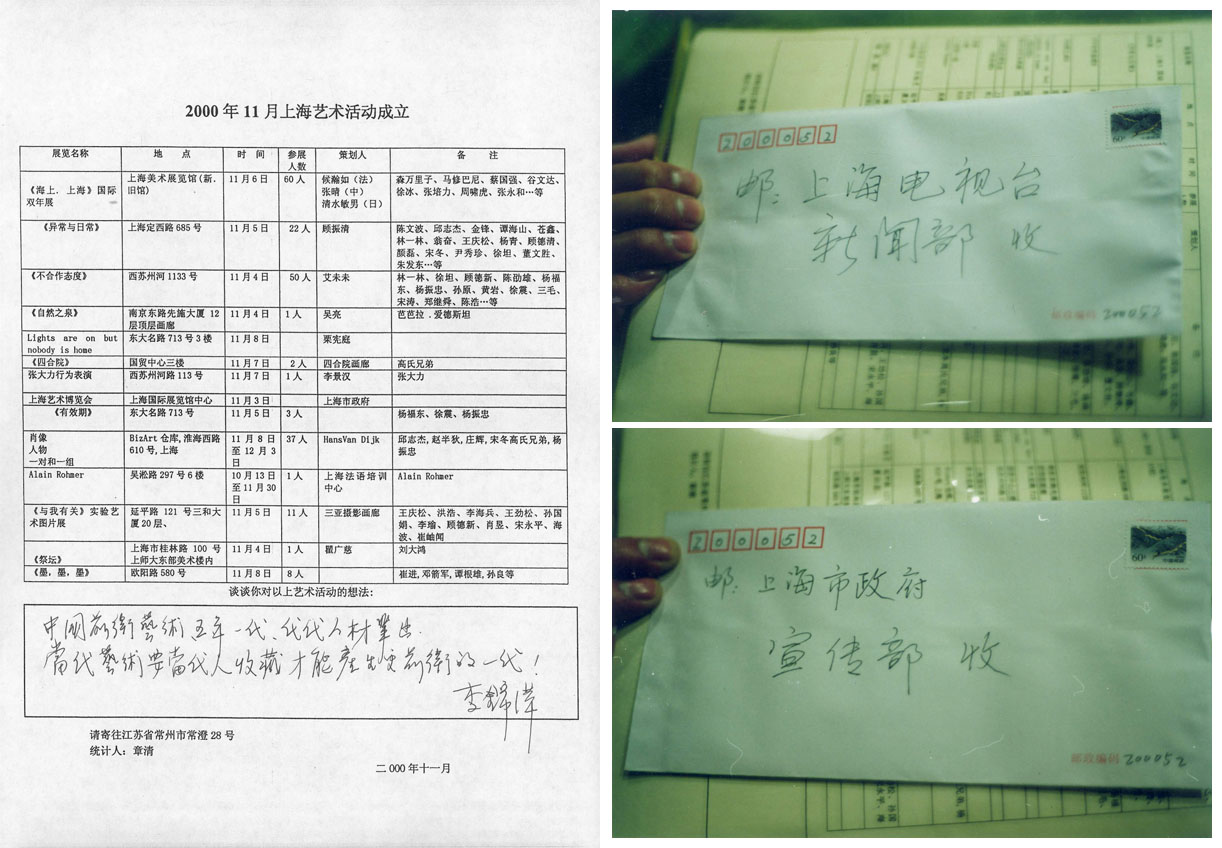 2000 年 11 月上海艺术活动成立
展览名称 地 点 时 间 参展人数 策划人 备 注
《海上．上海》国际双年展 上海美术展览馆(新.旧馆) 11 月 6 日 60 人 候瀚如（法） 张晴（中） 清水敏男（日） 森万里子、马修巴尼、蔡国强、谷文达、徐冰、张培力、周啸虎、张永和…等
《异常与日常》 上海定西路 685 号 11 月 5 日 22 人 顾振清 陈文波、邱志杰、金锋、谭海山、苍鑫、林一林、翁奋、王庆松、杨青、顾德清、颜磊、宋冬、尹秀珍、徐坦、董文胜、朱发东…等
《不合作态度》 西苏州河 1133 号 11 月 4 日 50 人 艾未未 林一林、徐坦、顾德新、陈劭雄、杨福东、杨振忠、孙原、黄岩、徐震、三毛、宋涛、郑继舜、陈浩…等
《自然之泉》 南京东路先施大厦 12 层顶层画廊 11 月 4 日 1 人 吴亮 芭芭拉．爱德斯坦
Lights are on but nobody is home 东大名路 713 号 3 楼 11 月 8 日 栗宪庭
《四合院》 国贸中心三楼 11 月 7 日 2 人 四合院画廊 高氏兄弟
张大力行为表演 西苏州河路 113 号 11 月 7 日 1 人 李景汉 张大力
上海艺术博览会 上海国际展览馆中心 11 月 3 日 上海市政府
《有效期》 东大名路 713 号 11 月 5 日 3 人 杨福东、徐震、杨振忠
肖像 人物 一对和一组 BizArt 仓库,淮海西路 610 号,上海 11 月 8 日至 12 月 3 日 37 人 HansVan Dijk 邱志杰,赵半狄,庄辉,宋冬高氏兄弟,杨振忠
Alain Rohmer 吴淞路 297 号 6 楼 10 月 13 日至 11 月 30 日 1 人 上海法语培训中心 Alain Rohmer
《与我有关》实验艺术图片展 延平路 121 号三和大厦 20 层、 11 月 5 日 11 人 三亚摄影画廊 王庆松、洪浩、李海兵、王劲松、孙国娟、李瑜、顾德新、肖昱、宋永平、海波、崔岫闻
《祭坛》 上海市桂林路 100 号上师大东部美术楼内 11 月 4 日 1 人 瞿广慈 刘大鸿
《墨，墨，墨》 欧阳路 580 号 11 月 8 日 8 人 崔进,邓箭军,谭根雄,孙良等
谈谈你对以上艺术活动的想法:
中國前衛藝術五年一代、代代人材輩出.
當代藝術要當代人收藏才能產生更前衛的一代！
请寄往江苏省常州市常澄 28 号
统计人：章清
二 000 年十一月
200052
60分
邮: 上海电视台
新闻部 收
邮政编码 200052
200052
60分
邮: 上海市政府
宣传部 收
邮政编码 200052